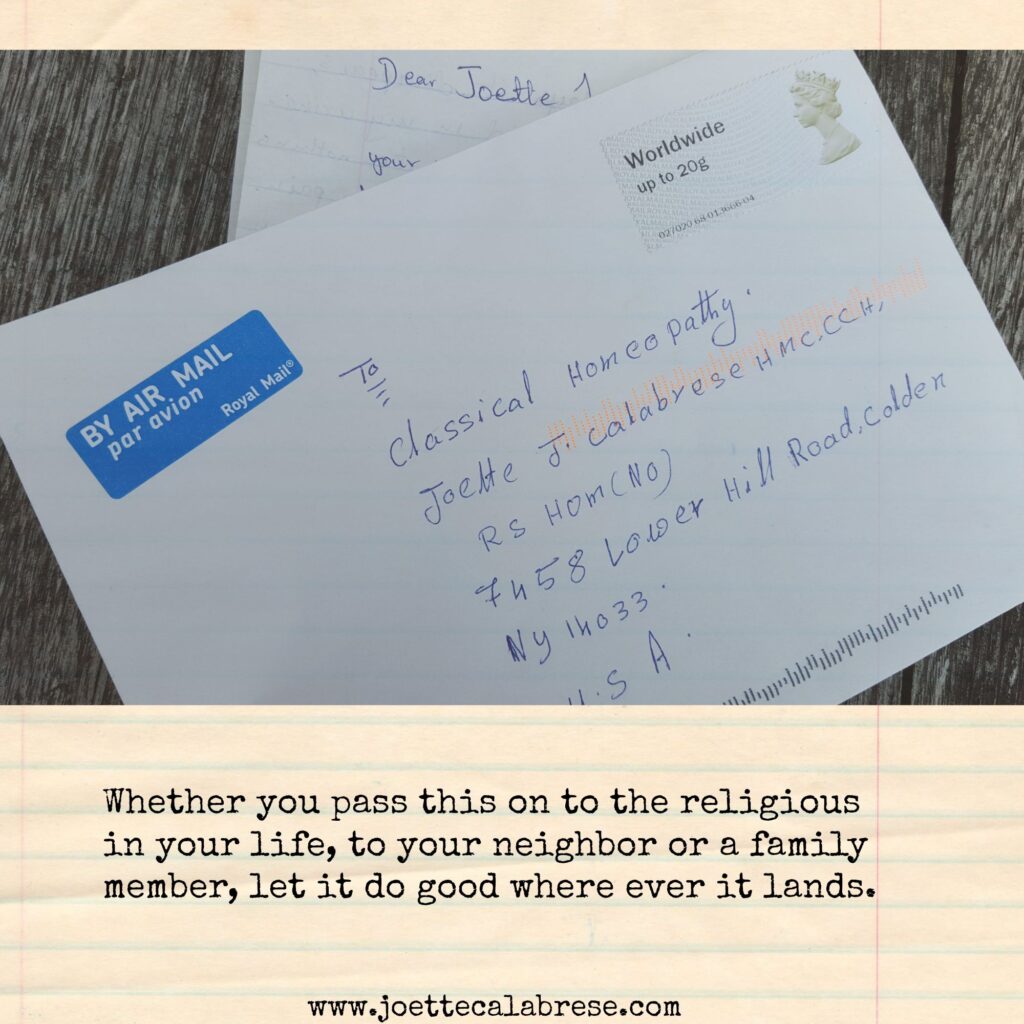 Dear Joette
your
Worldwide
up to 20g
02/020 68-013666-04
BY AIR MAIL
par avion
Royal Mail®
To
Classical Homeopathy.
Joette J. Calabrese HMC, CCH,
RS HOM (NO)
7458 Lower Hill Road, Colden
NY 14033.
U.S A.
Whether you pass this on to the religious
in your life, to your neighbor or a family
member, let it do good where ever it lands.
www.joettecalabrese.com